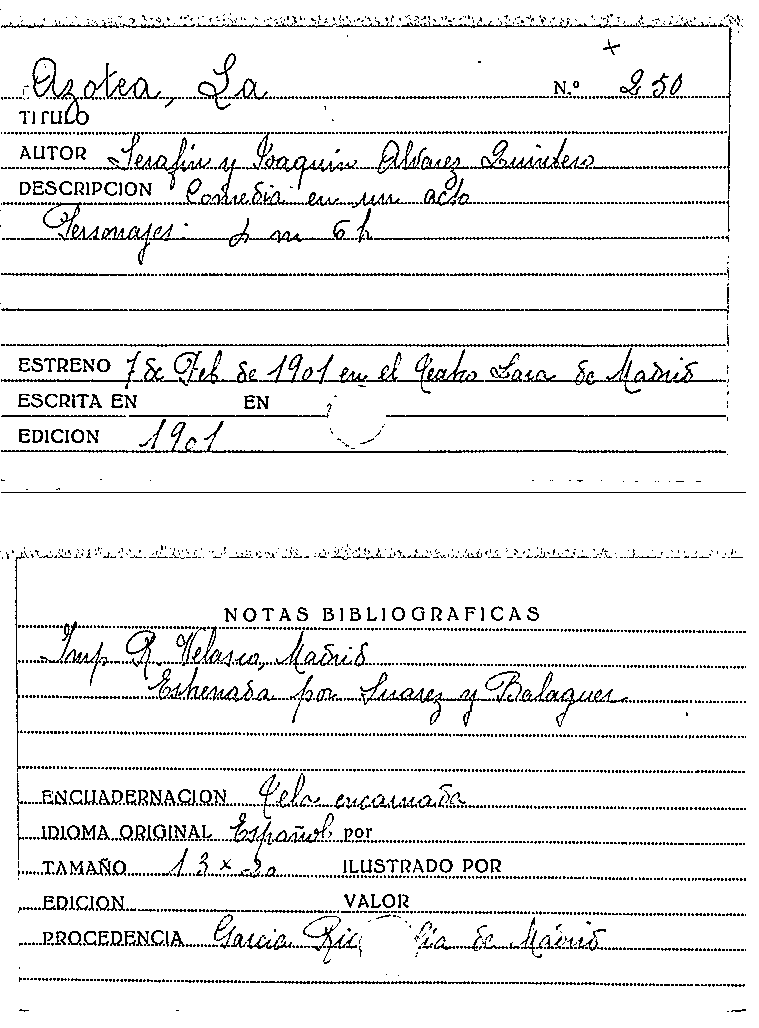 Azotea, La N.º 250
TITULO
AUTOR Serafin y Joaquin Alvarez Quintero
DESCRIPCION Comedia en un acto
Personajes: m 6 h
ESTRENO 7 de Feb. de 1901 en el Teatro Lara de Madrid
ESCRITA EN EN
EDICION 1901
NOTAS BIBLIOGRAFICAS
Imp R. Velasco, Madrid
Estrenada por Suarez y Balaguer
ENCUADERNACION Tela encarnada
IDIOMA ORIGINAL Español por
TAMAÑO 13 x 20 ILUSTRADO POR
EDICION VALOR
PROCEDENCIA Garcia de Madrid